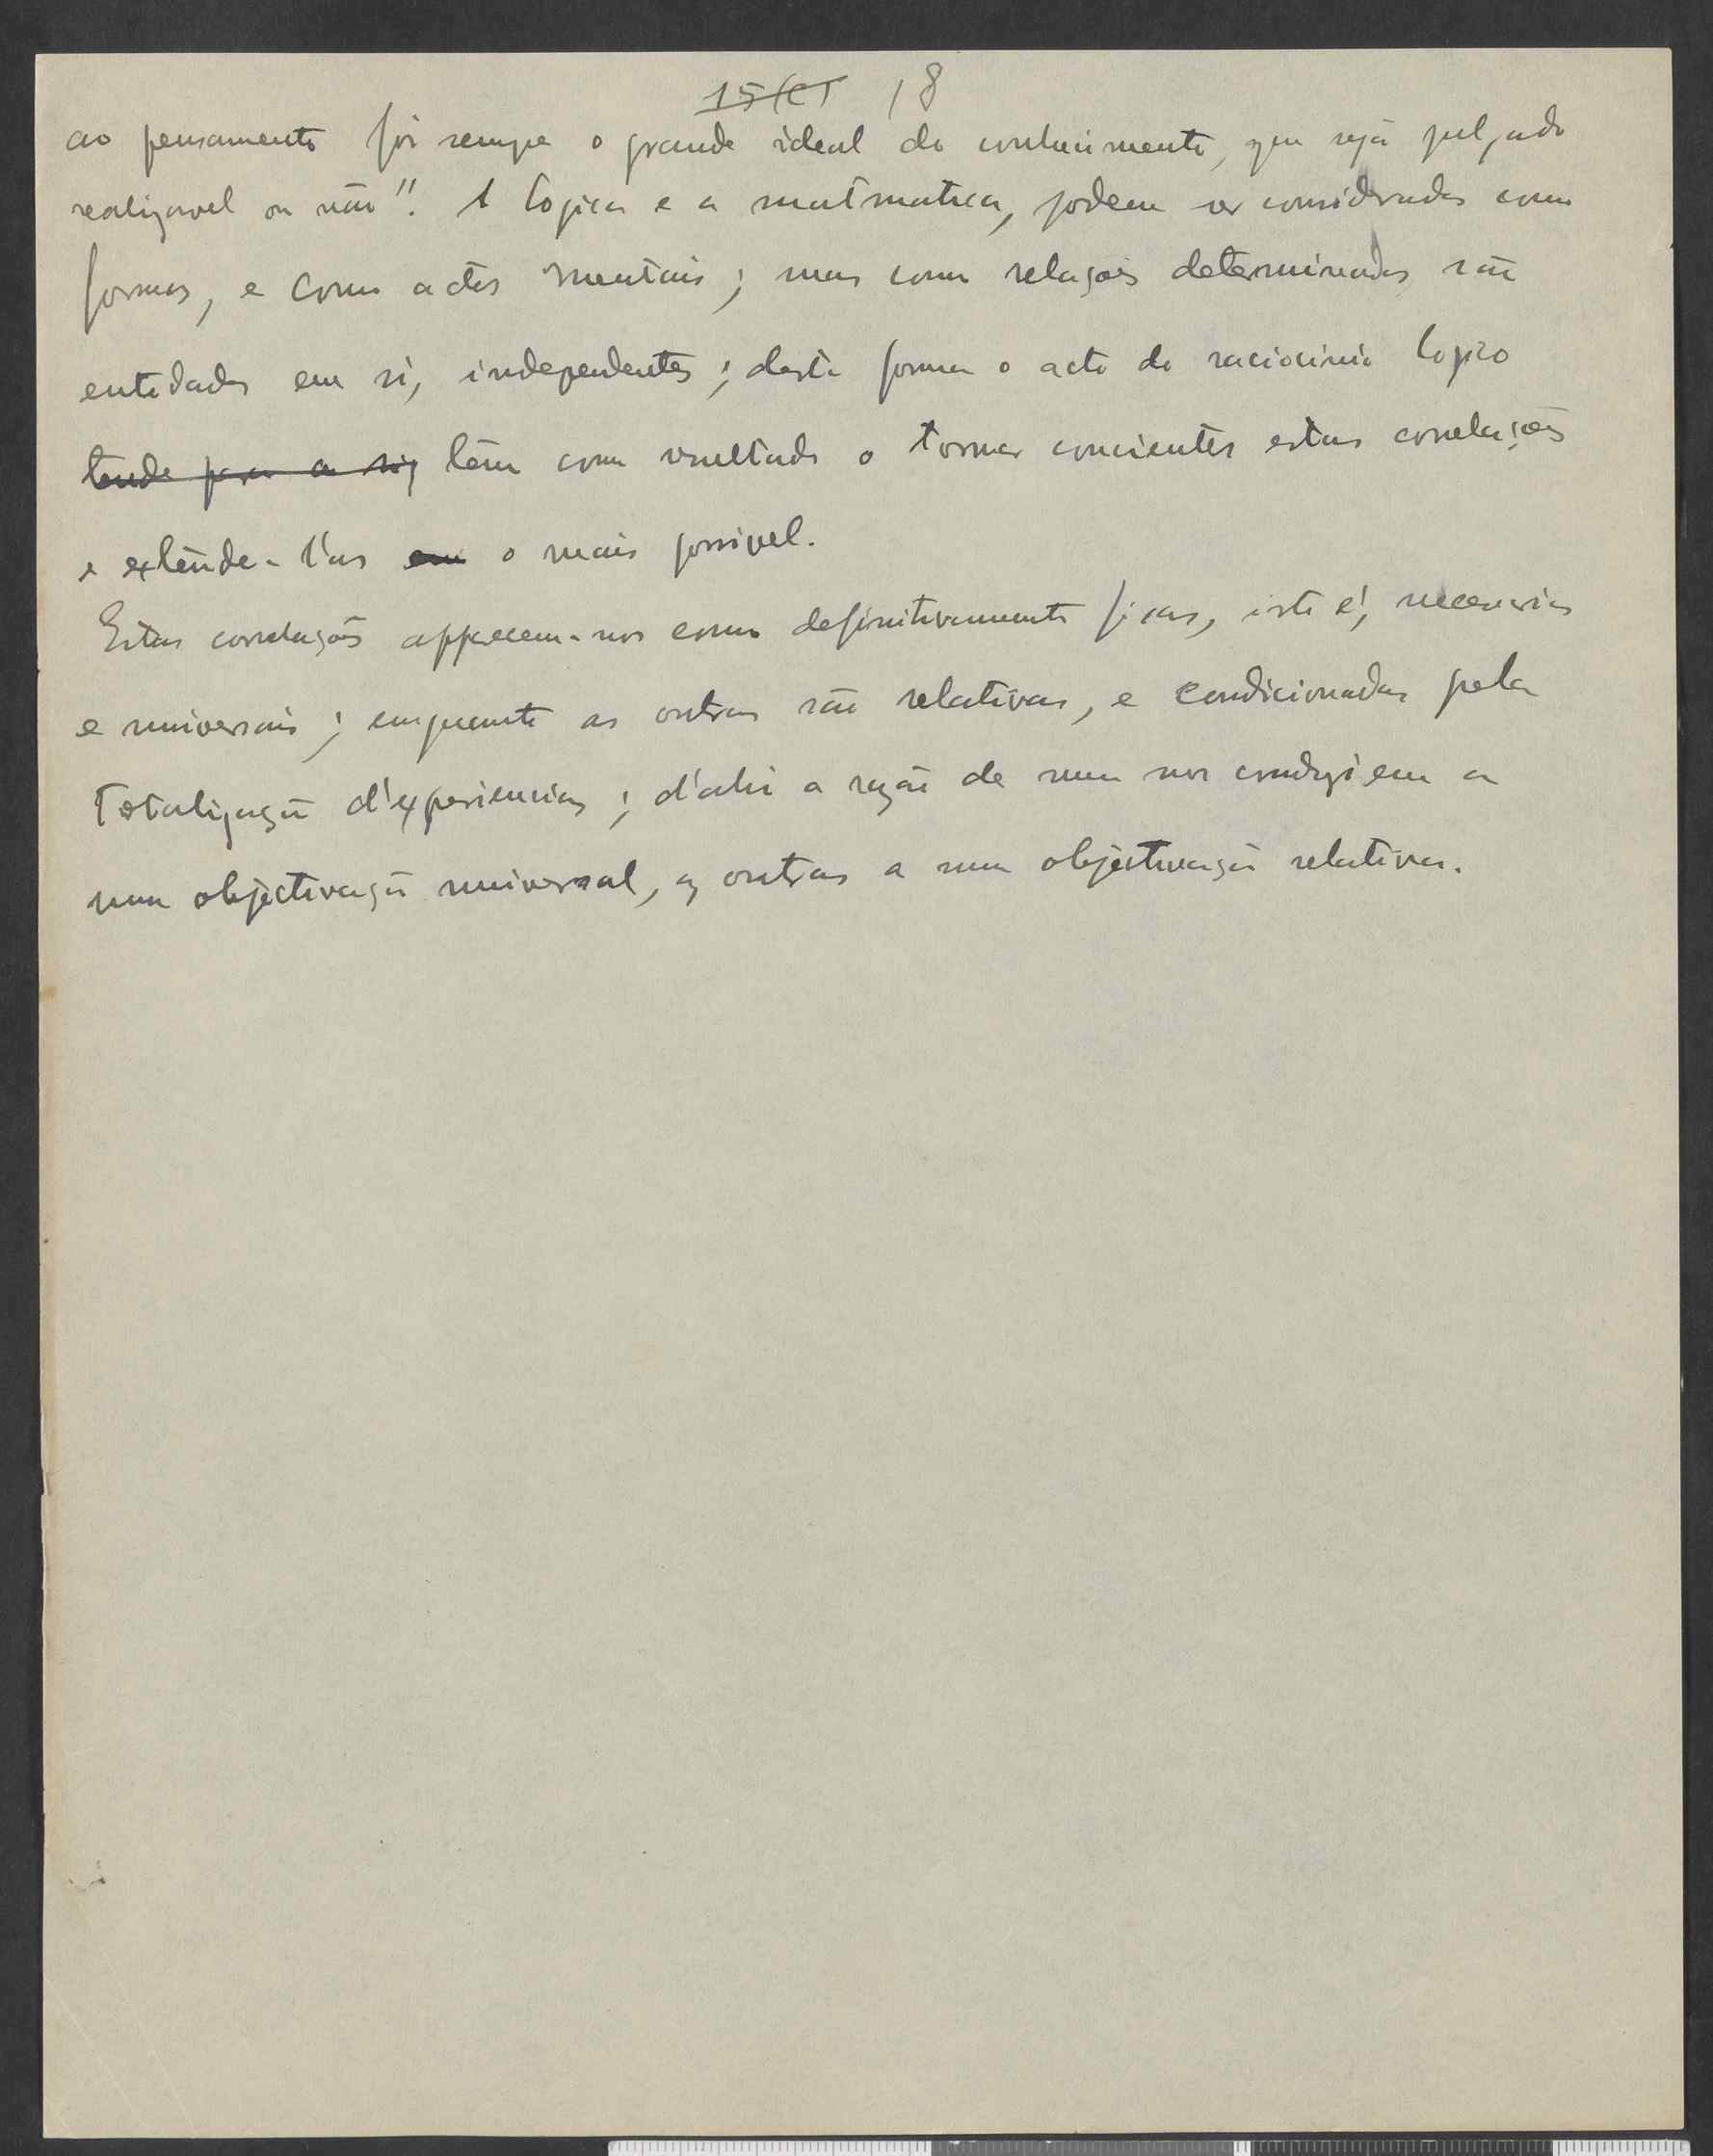 18
ao pensamento foi sempre o grande ideal do conhecimento, quer seja julgado
realizavel ou não". A logica e a matmatica, podem ser consideradas como
formas, e como actos mentais; mas como relações determinadas são
entidades em si, independentes; desta forma o acto do raciocinio logico
tende para a sig têm como resultado o tornar concientes estas correlações
e extênde-l'as em o mais possivel.
Estas correlações apparecem-nos como definitivamente fixas, isto é, necessarias
e universais; emquanto as outras são relativas, e condicionadas pela
totalização d'experiencias; d'ahi a razão de umas nos conduziem a
uma objectivação universal, as outras a uma objectivação relativa.